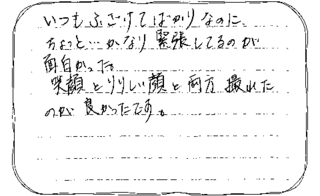 いつもふざけてばかりなのに、
ちょっと…かなり緊張してるのが
面白かった。
笑顔とりりしい顔と両方撮れた
のが良かったです。